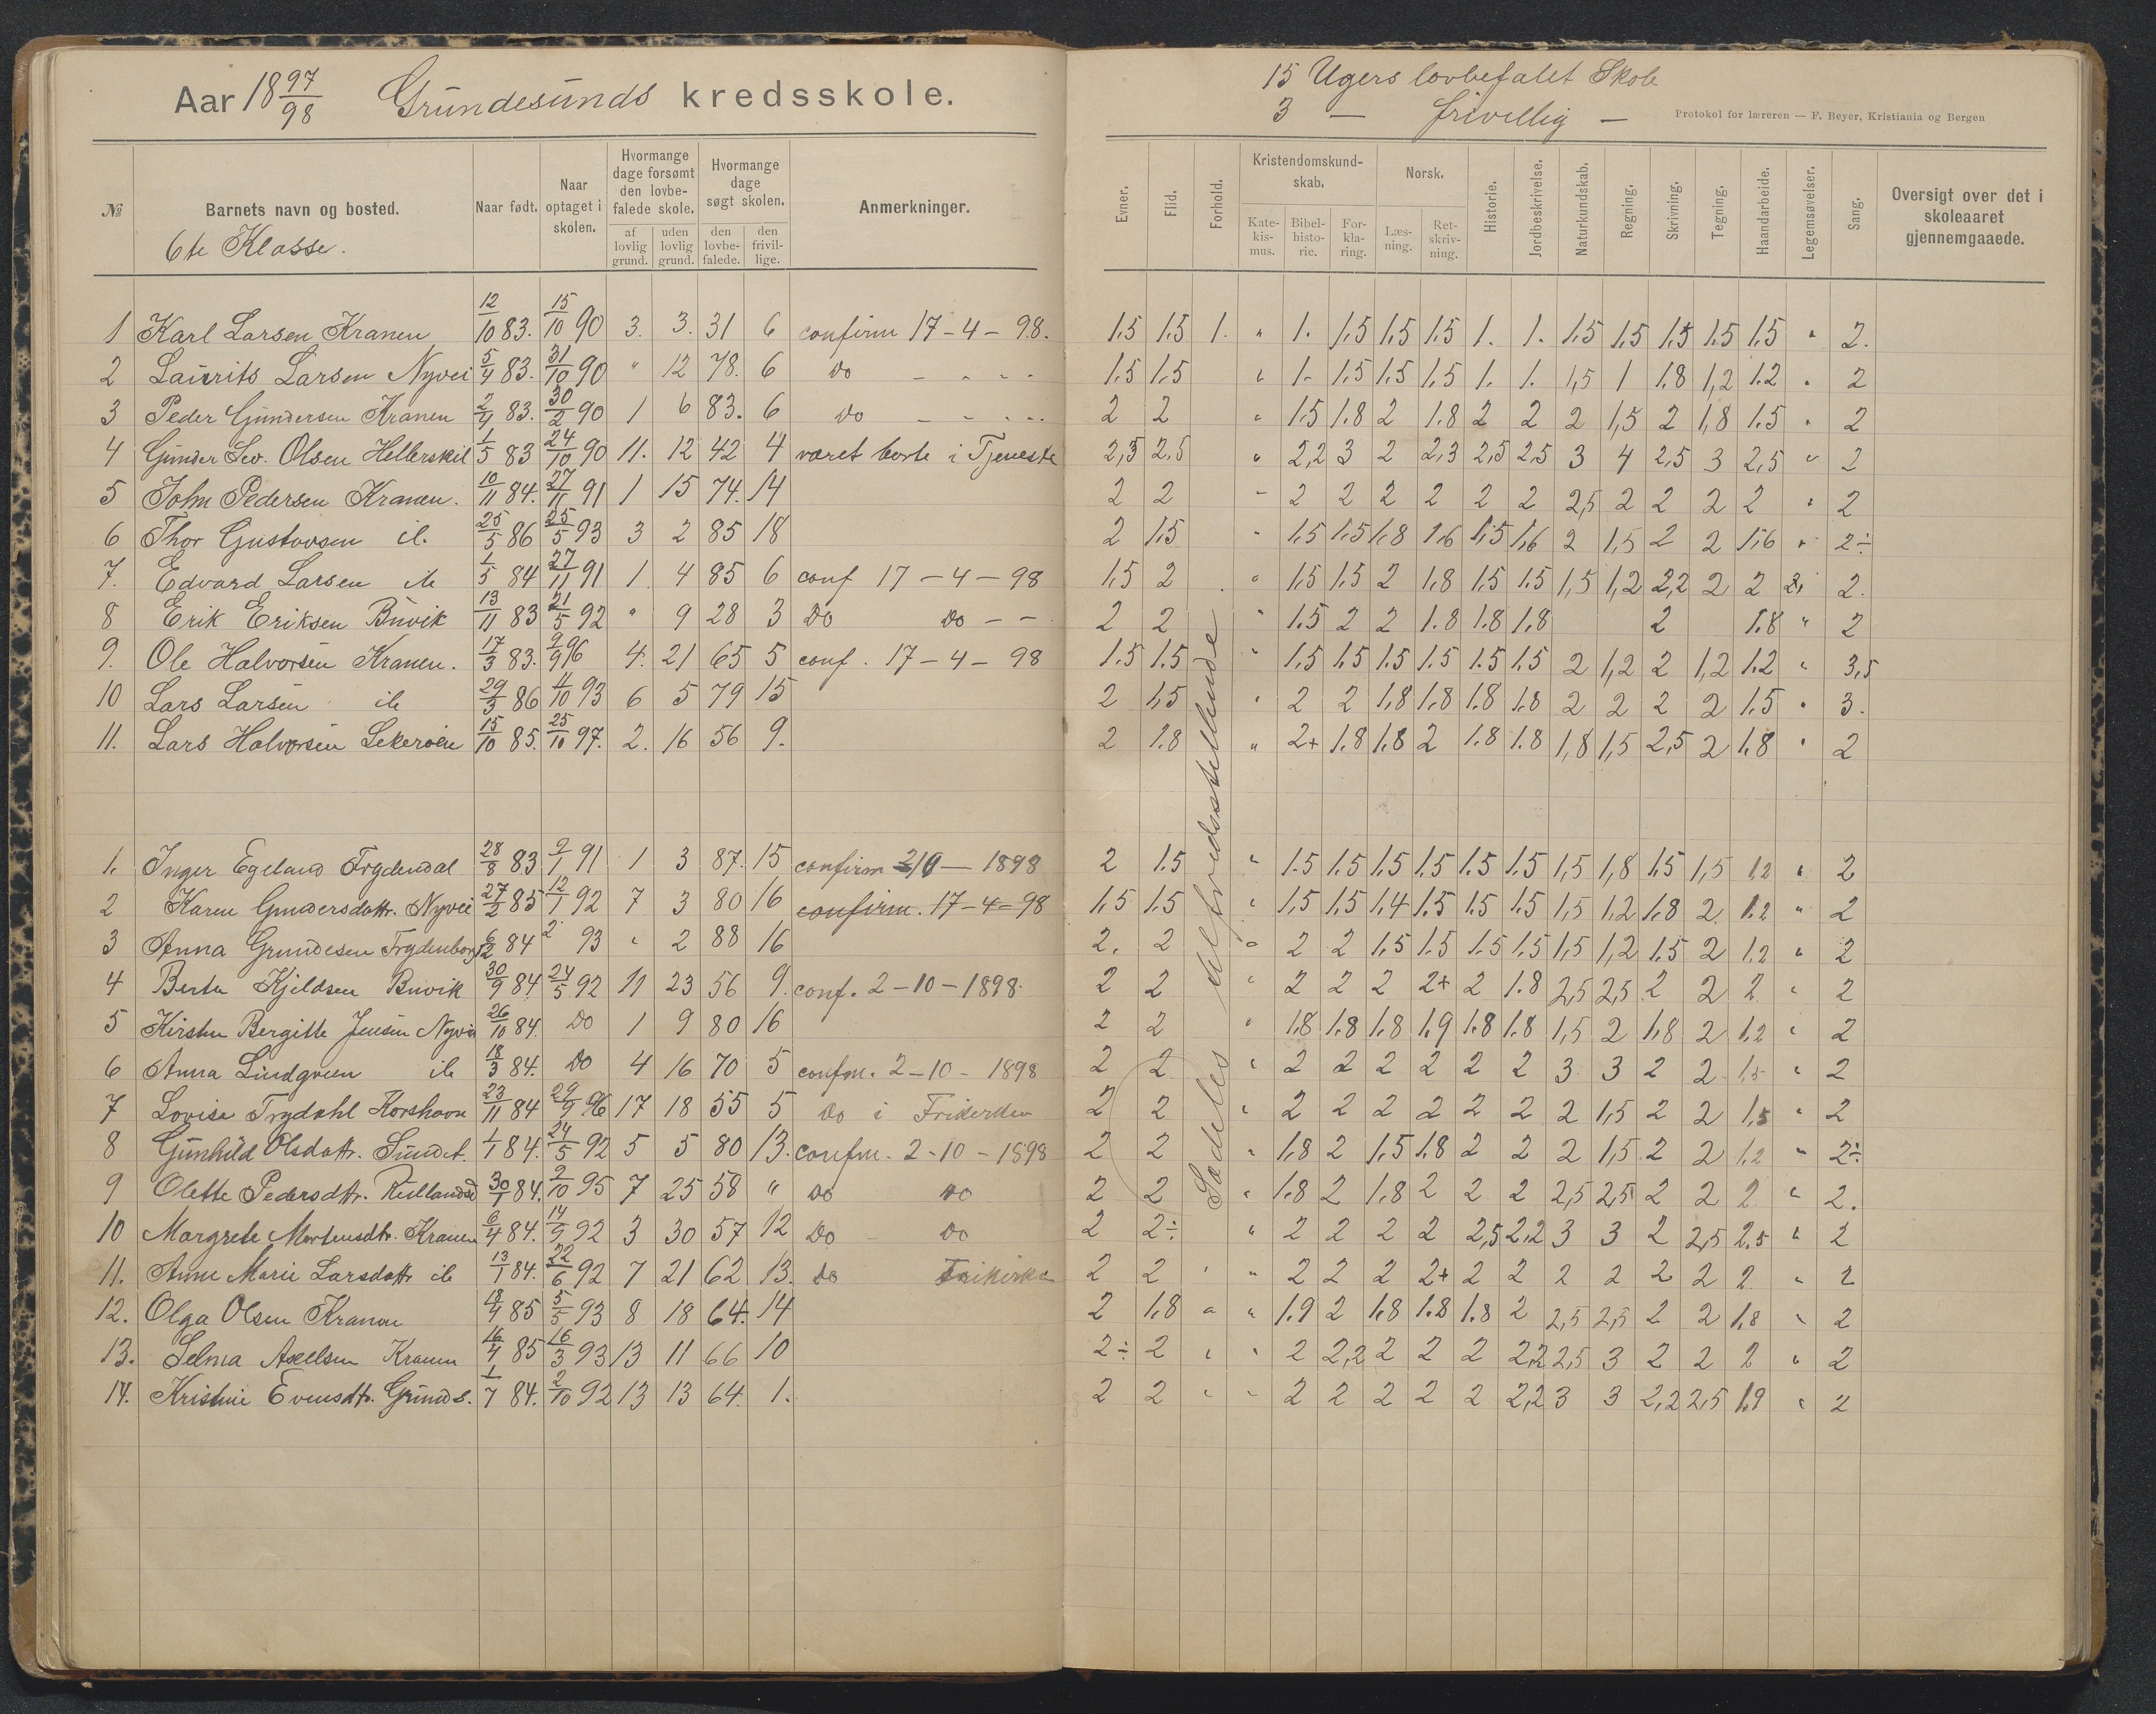 Aar 18 97/98 Gründesünds kredsskole.
15 Ugers lovbefalet Skole
3 — frivillig —
Protokol for læreren — F. Beyer, Kristiania og Bergen
№ | Barnets navn og bosted. | Naar født. | Naar optaget i skolen. | Hvormange dage forsømt den lovbefalede skole. af lovlig grund. | uden lovlig grund. | Hvormange dage søgt skolen. den lovbefalede. | den frivillige. | Anmerkninger. | Evner. | Flid. | Forhold. | Kristendomskundskab. Katekismus. | Bibelhistorie. | Forklaring. | Norsk. Læsning. | Retskrivning. | Historie. | Jordbeskrivelse. | Naturkundskab. | Regning. | Skrivning. | Tegning. | Haandarbeide. | Legemsøvelser. | Sang. | Oversigt over det i skoleaaret gjennemgaaede.
6te Klasse.
1 Karl Larsen Kranen 12/10 83. 15/10 90 3. 3. 31 6 confirm 17-4-98. 1.5 1.5 1. " 1. 1.5 1.5 1.5 1. 1. 1.5 1.5 1.5 1.5 1.5 " 2.
2 Laürits Larsen Nyvei 5/4 83. 31/10 90 " 12 78. 6 do - - - - 1.5 1.5 " 1. 1.5 1.5 1.5 1. 1. 1,5 1 1.8 1,2 1.2 " 2
3 Peder Gündersen Kranen 2/4 83. 30/2 90 1 6 83. 6 do - - - - 2 2 " 1.5 1.8 2 1.8 2 2 2 1,5 2 1,8 1.5 " 2
4 Günder Sev. Olsen Hellerskil 1/5 83 24/10 90 11. 12 42 4 været borte i Tjeneste 2,3 2.5 " 2,2 3 2 2,3 2,5 2,5 3 4 2,5 3 2,5 " 2
5 John Pedersen Kranen. 10/11 84. 27/11 91 1 15 74. 14 2 2 " 2 2 2 2 2 2 2,5 2 2 2 2 " 2
6 Thor Gustavsen il. 25/5 86 25/5 93 3 2 85 18 2 1.5 " 1.5 1.5 1.8 1.6 1.5 1,6 2 1.5 2 2 1.6 " 2÷
7. Edvard Larsen ib 1/5 84 27/11 91 1. 4 85 6 conf 17-4-98 1.5 2 " 1.5 1.5 2 1.8 1.5 1.5 1,5 1,2 2,2 2 2 2.
8 Erik Eriksen Büvik 13/11 83 21/5 92 " 9 28 3 do do - - 2 2 " 1.5 2 2 1.8 1.8 1.8 2 1.8 " 2
9. Ole Halvorsen Kranen. 17/3 83. 9/9 96 4. 21 65 5 conf. 17-4-98 1.5 1.5 " 1.5 1.5 1.5 1.5 1.5 1.5 2 1,2 2 1,2 1.2 " 3,5
10 Lars Larsen ib 29/3 86 4/10 93 6 5 79 15 2 1,5 " 2 2 1,8 1.8 1.8 1.8 2 2 2 2 1.5 " 3.
11. Lars Halvorsen Lekeröen 15/10 85. 25/10 97. 2. 16 56 9. 2 1.8 " 2+ 1.8 1.8 2 1.8 1.8 1,8 1,5 2,5 2 1.8 " 2
Sædeles tilfredsstillende
1. Inger Egeland Frydendal 28/8 83 9/1 91 1 3 87. 15 confirm 2/10 — 1898 2 1.5 " 1.5 1.5 1.5 1.5 1.5 1.5 1,5 1,8 1.5 1,5 1.2 " 2
2 Karen Gundersdattr. Nyvei 27/2 85 12/1 92 7 3 80 16 confirm. 17-4-98 1.5 1.5 " 1.5 1.5 1.4 1.5 1.5 1.5 1,5 1.2 1.8 2 1.2 " 2
3 Anna Grundesen Frydenborg 6/2 84 2 93 " 2 88 16 2. 2 " 2 2 1.5 1.5 1.5 1.5 1,5 1,2 1.5 2 1.2 " 2
4 Berta Kjeldsen Büvik 30/9 84. 24/5 92 11 23 56 9. conf. 2-10-1898 2 2 " 2 2 2 2+ 2 1.8 2,5 2,5 2 2 2 " 2
5 Kirsten Bergitte Jensen Nyvei 26/10 84. do 1 9 80 16 2 2 " 1.8 1.8 1.8 1.9 1.8 1.8 1,5 2 1.8 2 1.2 " 2
6 Anna Lindgreen ib 18/3 84. do 4 16 70 5 confm. 2-10-1898 2 2 " 2 2 2 2 2 2 3 3 2 2 1.5 " 2
7 Lovise Trydahl Korshavn 23/11 84 29/9 96 17 18 55 5 do i Frikirken 2 2 " 2 2 2 2 2 2 2 1,5 2 2 1,5 " 2
8 Günhild Olsdattr. Sündet. 1/1 84. 24/5 92 5 5 80 13. confm. 2-10-1898 2 2 " 1.8 2 1.5 1.8 2 2 2 1,5 2 2 1.2 " 2÷
9 Olette Pedersdtr. 30/1 84. 2/10 95 7 25 58 " do do 2 2 " 1.8 2 1.8 2 2 2 2,5 2,5 2 2 2 " 2.
10 Margrete Mortensdtr. Kranen 6/4 84. 14/9 92 3 30 57 12 do - do 2 2÷ " 2 2 2 2 2,5 2.2 3 3 2 2,5 2.5 " 2
11. Anne Marie Larsdattr ib 13/1 84. 22/6 92 7 21 62 13. do Frikirken 2 2 " " 2 2 2 2+ 2 2 2 2 2 2 2 " 2
12. Olga Olsen Kranen 18/4 85 5/5 93 8 18 64. 14 2 1.8 " " 1.9 2 1.8 1.8 1.8 2 2,5 2,5 2 2 1.8 " 2
13. Selma Axelsen Kranen 16/4 85 16/3 93 13 11 66 10 2÷ 2 " " 2 2,2 2 2 2 2,2 2,5 3 2 2 2 " 2
14. Kristine Evensdtr. Gründs. 1/7 84. 2/10 92 13 13 64. 1. 2 2 " " 2 2 2 2 2 2,2 3 3 2,2 2,5 1.9 " 2